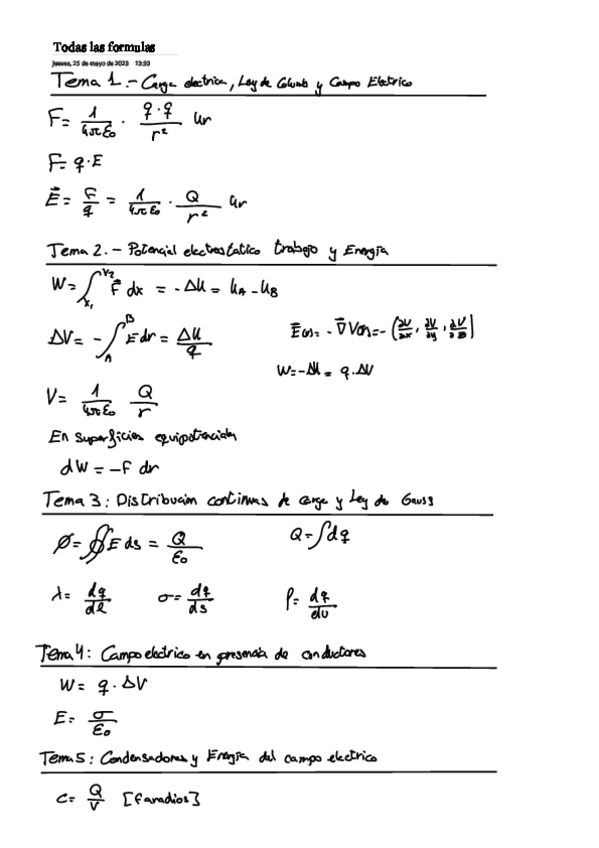 Todas las formulas
jueves, 25 de mayo de 2023 13:33
Tema 1.- Carga electrica, Ley de Coulomb y Campo Electrico
F = 1/(4πε₀) · (q·q)/r² ur
F = q·E
E⃗ = F/q = 1/(4πε₀) · Q/r² ur
Tema 2.- Potencial electrostatico trabajo y Energia
W = ∫_{x₁}^{x₂} F⃗ dx = -ΔU = U_A - U_B
ΔV = -∫_A^B E dr = ΔU/q
E⃗(r) = -∇⃗V(r) = -(∂V/∂x, ∂V/∂y, ∂V/∂z)
W = -ΔU = q·ΔV
V = 1/(4πε₀) Q/r
En superficies equipotenciales
dW = -F dr
Tema 3: Distribucion continuas de carga y Ley de Gauss
Ø = ∯ E ds = Q/ε₀
Q = ∫dq
λ = dq/dl σ = dq/ds ρ = dq/dv
Tema 4: Campo electrico en presencia de conductores
W = q·ΔV
E = σ/ε₀
Tema 5: Condensadores y Energia del campo electrico
C = Q/V [faradios]